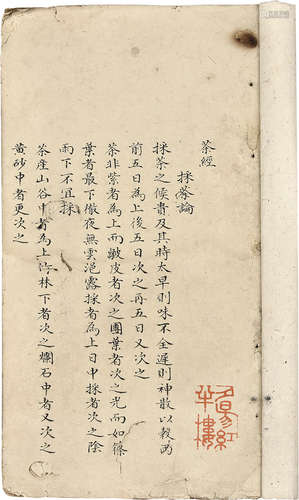 茶經
採茶論
採茶之候貴及其時太早則味不全遲則神散以穀雨
前五日為上後五日次之再五日又次之
茶非紫者為上而皺皮者次之團葉者次之光而如篠
葉者最下徹夜無雲浥露採者為上日中採者次之陰
雨下不宜採
茶產山谷中者為上竹林下者次之爛石中者又次之
黄砂中者更次之
紅
半樓